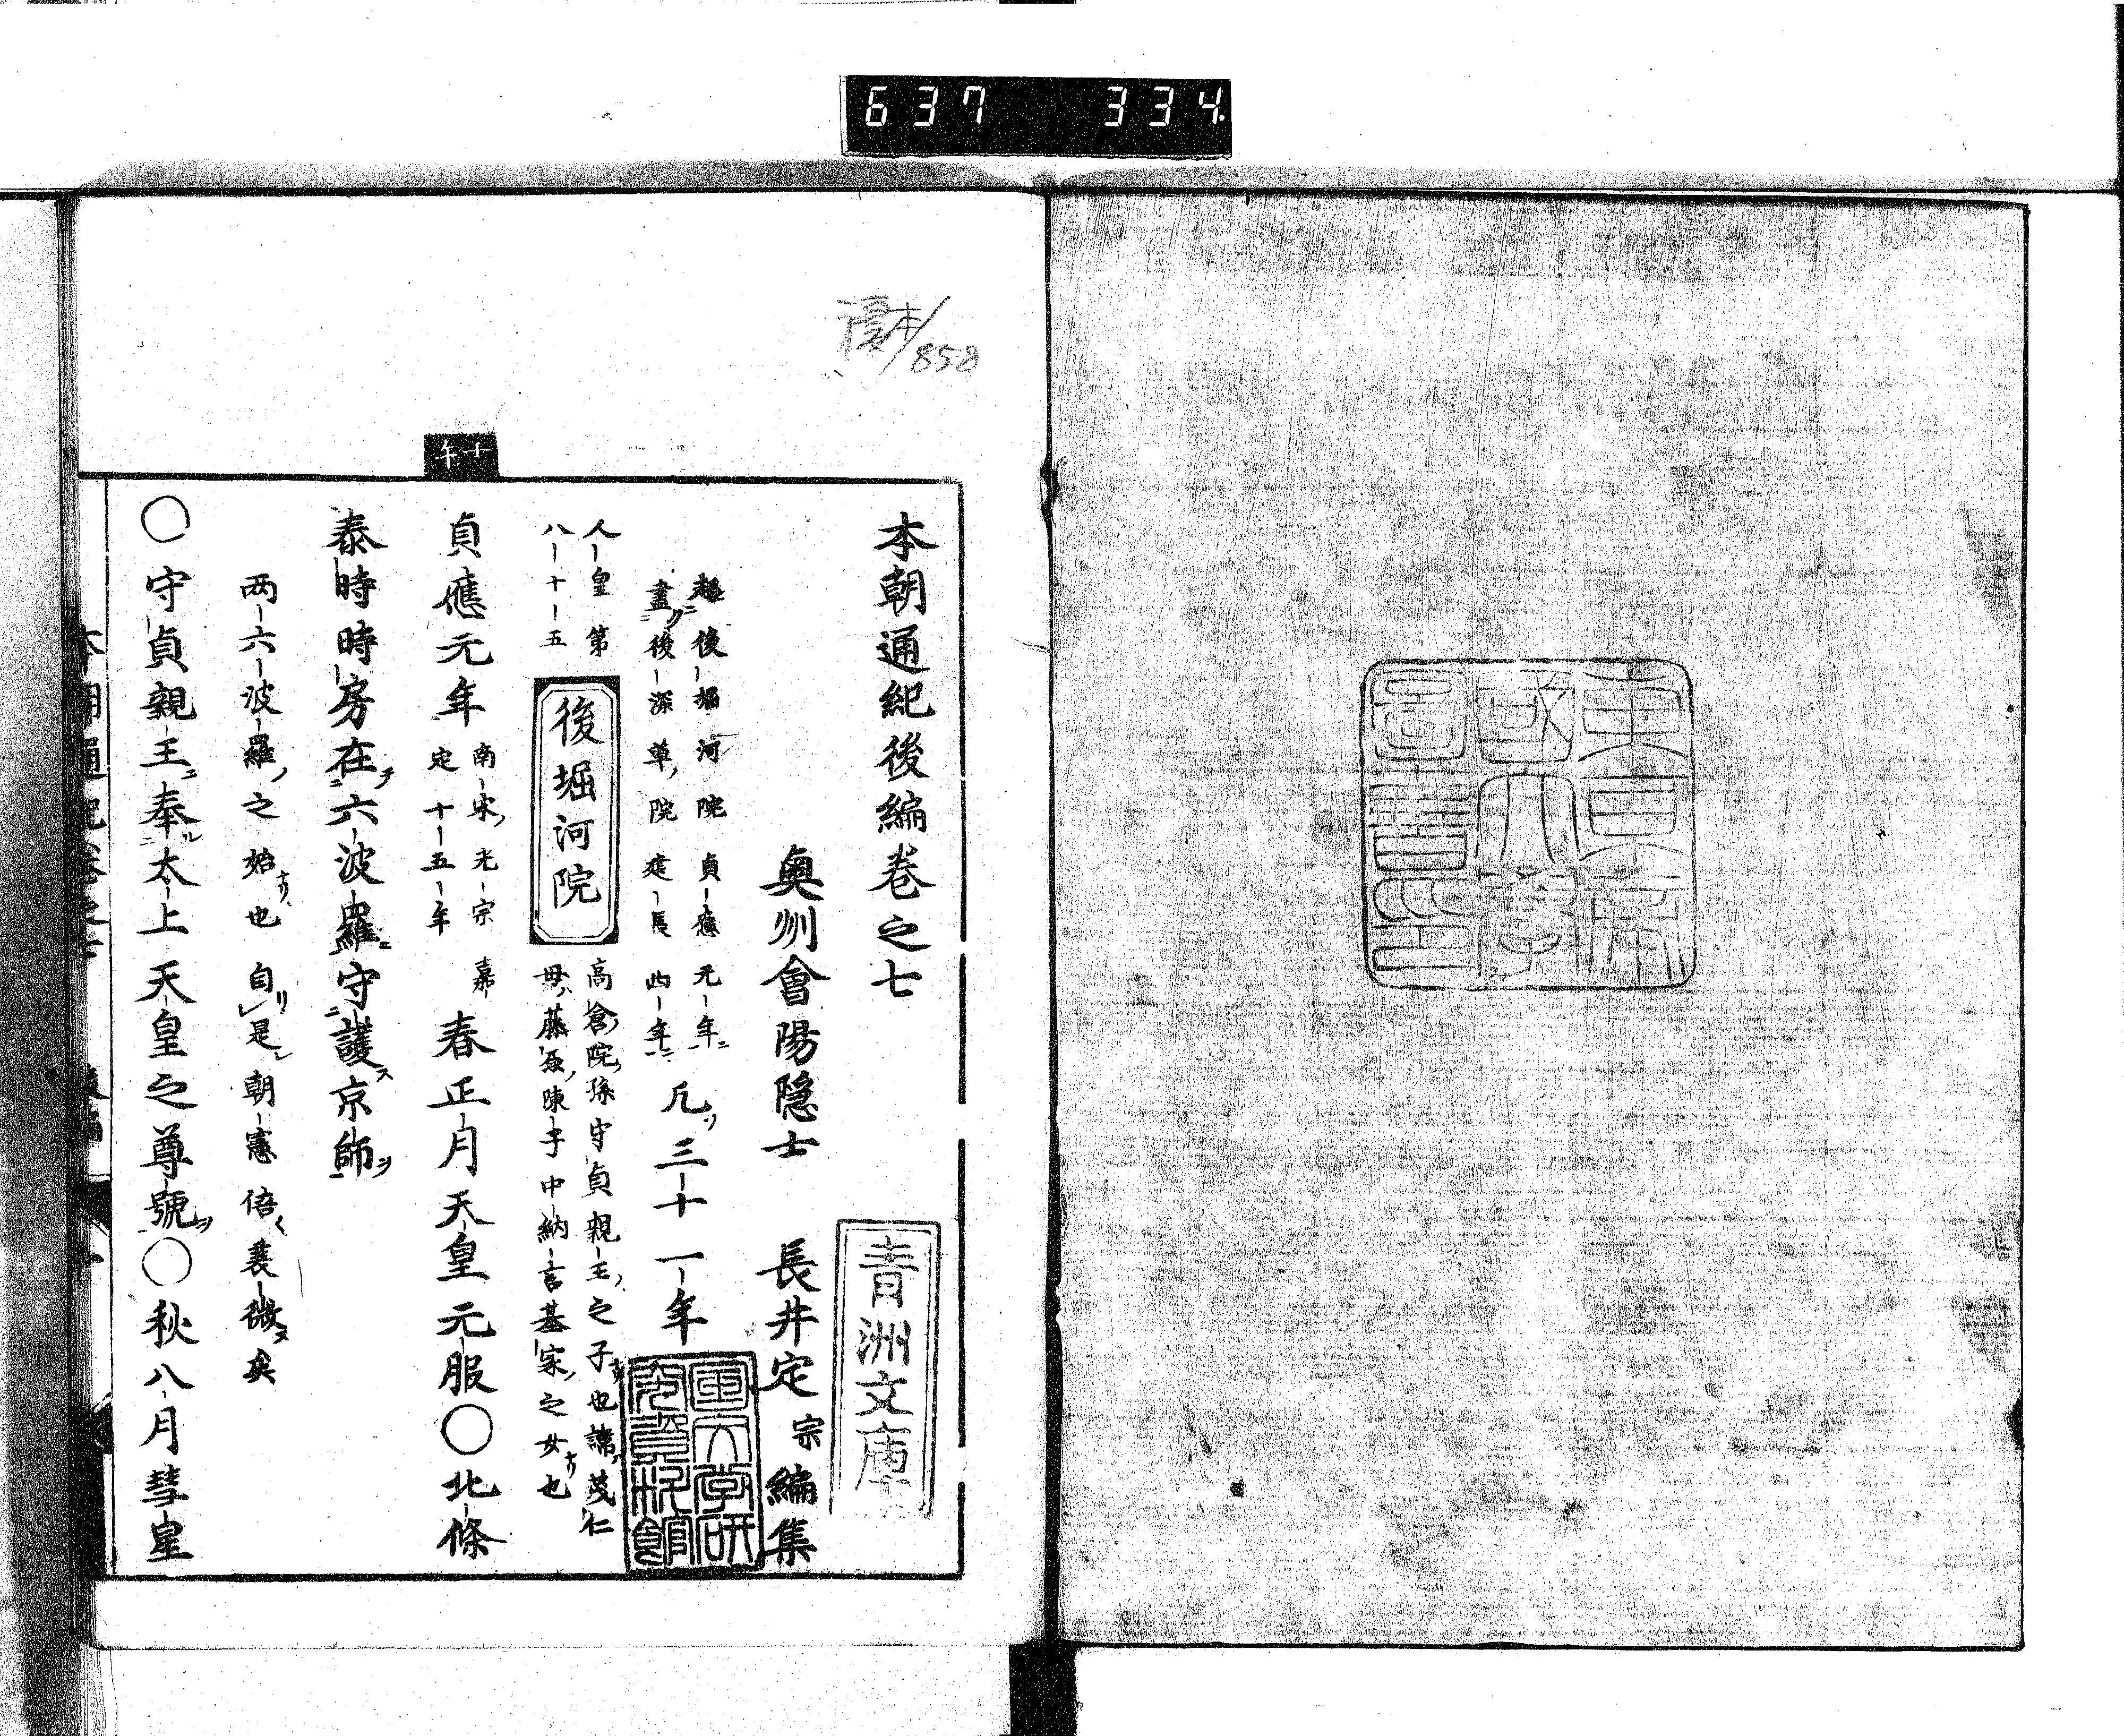 637 334
858
東京帝
國大學
圖書印
本朝通紀後編卷之七
青洲文庫
奥州會陽隠士 長井定宗編集
起後堀河院貞應元年
盡後深草院建長四年 凡三十一年
國文学研
究資料館
人皇第
八十五
後堀河院
高倉院孫守貞親王之子也諱茂仁
母藤原陳子中納言基家之女也
壬午
貞應元年
南宋光宗嘉
定十五年
春正月天皇元服○北條
泰時時房在六波羅守護京師
两六波羅之始也自是朝憲倍衰微矣
○守貞親王奉太上天皇之尊號○秋八月彗星